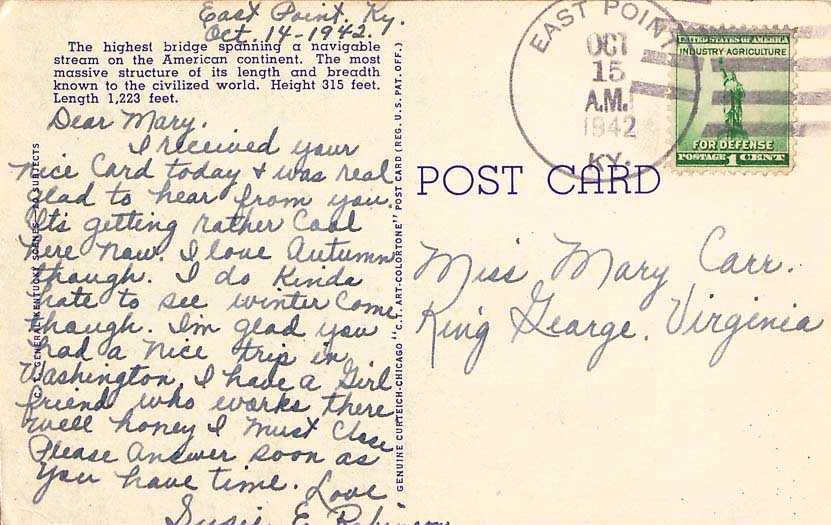 East Point. Ky.
Oct. 14-1942.
The highest bridge spanning a navigable
stream on the American continent. The most
massive structure of its length and breadth
known to the civilized world. Height 315 feet.
Length 1,223 feet.
Dear Mary.
I received your
nice Card today & was real
glad to hear from you.
It's getting rather Cool
here now. I love Autumn
though. I do Kinda
hate to see winter Come
though. I'm glad you
had a nice trip in
Washington. I have a Girl
friend who works there
well honey I must Close
Please Answer soon as
you have time. Love
Susie E. Robinson
C. T. GENERAL KENTUCKY SCENES—20 SUBJECTS
GENUINE CURTEICH-CHICAGO "C. T. ART-COLORTONE" POST CARD (REG. U. S. PAT. OFF.)
POST CARD
EAST POINT
OCT
15
A.M.
1942
KY.
UNITED STATES OF AMERICA
INDUSTRY·AGRICULTURE
FOR DEFENSE
POSTAGE 1 CENT
Miss Mary Carr.
King George. Virginia